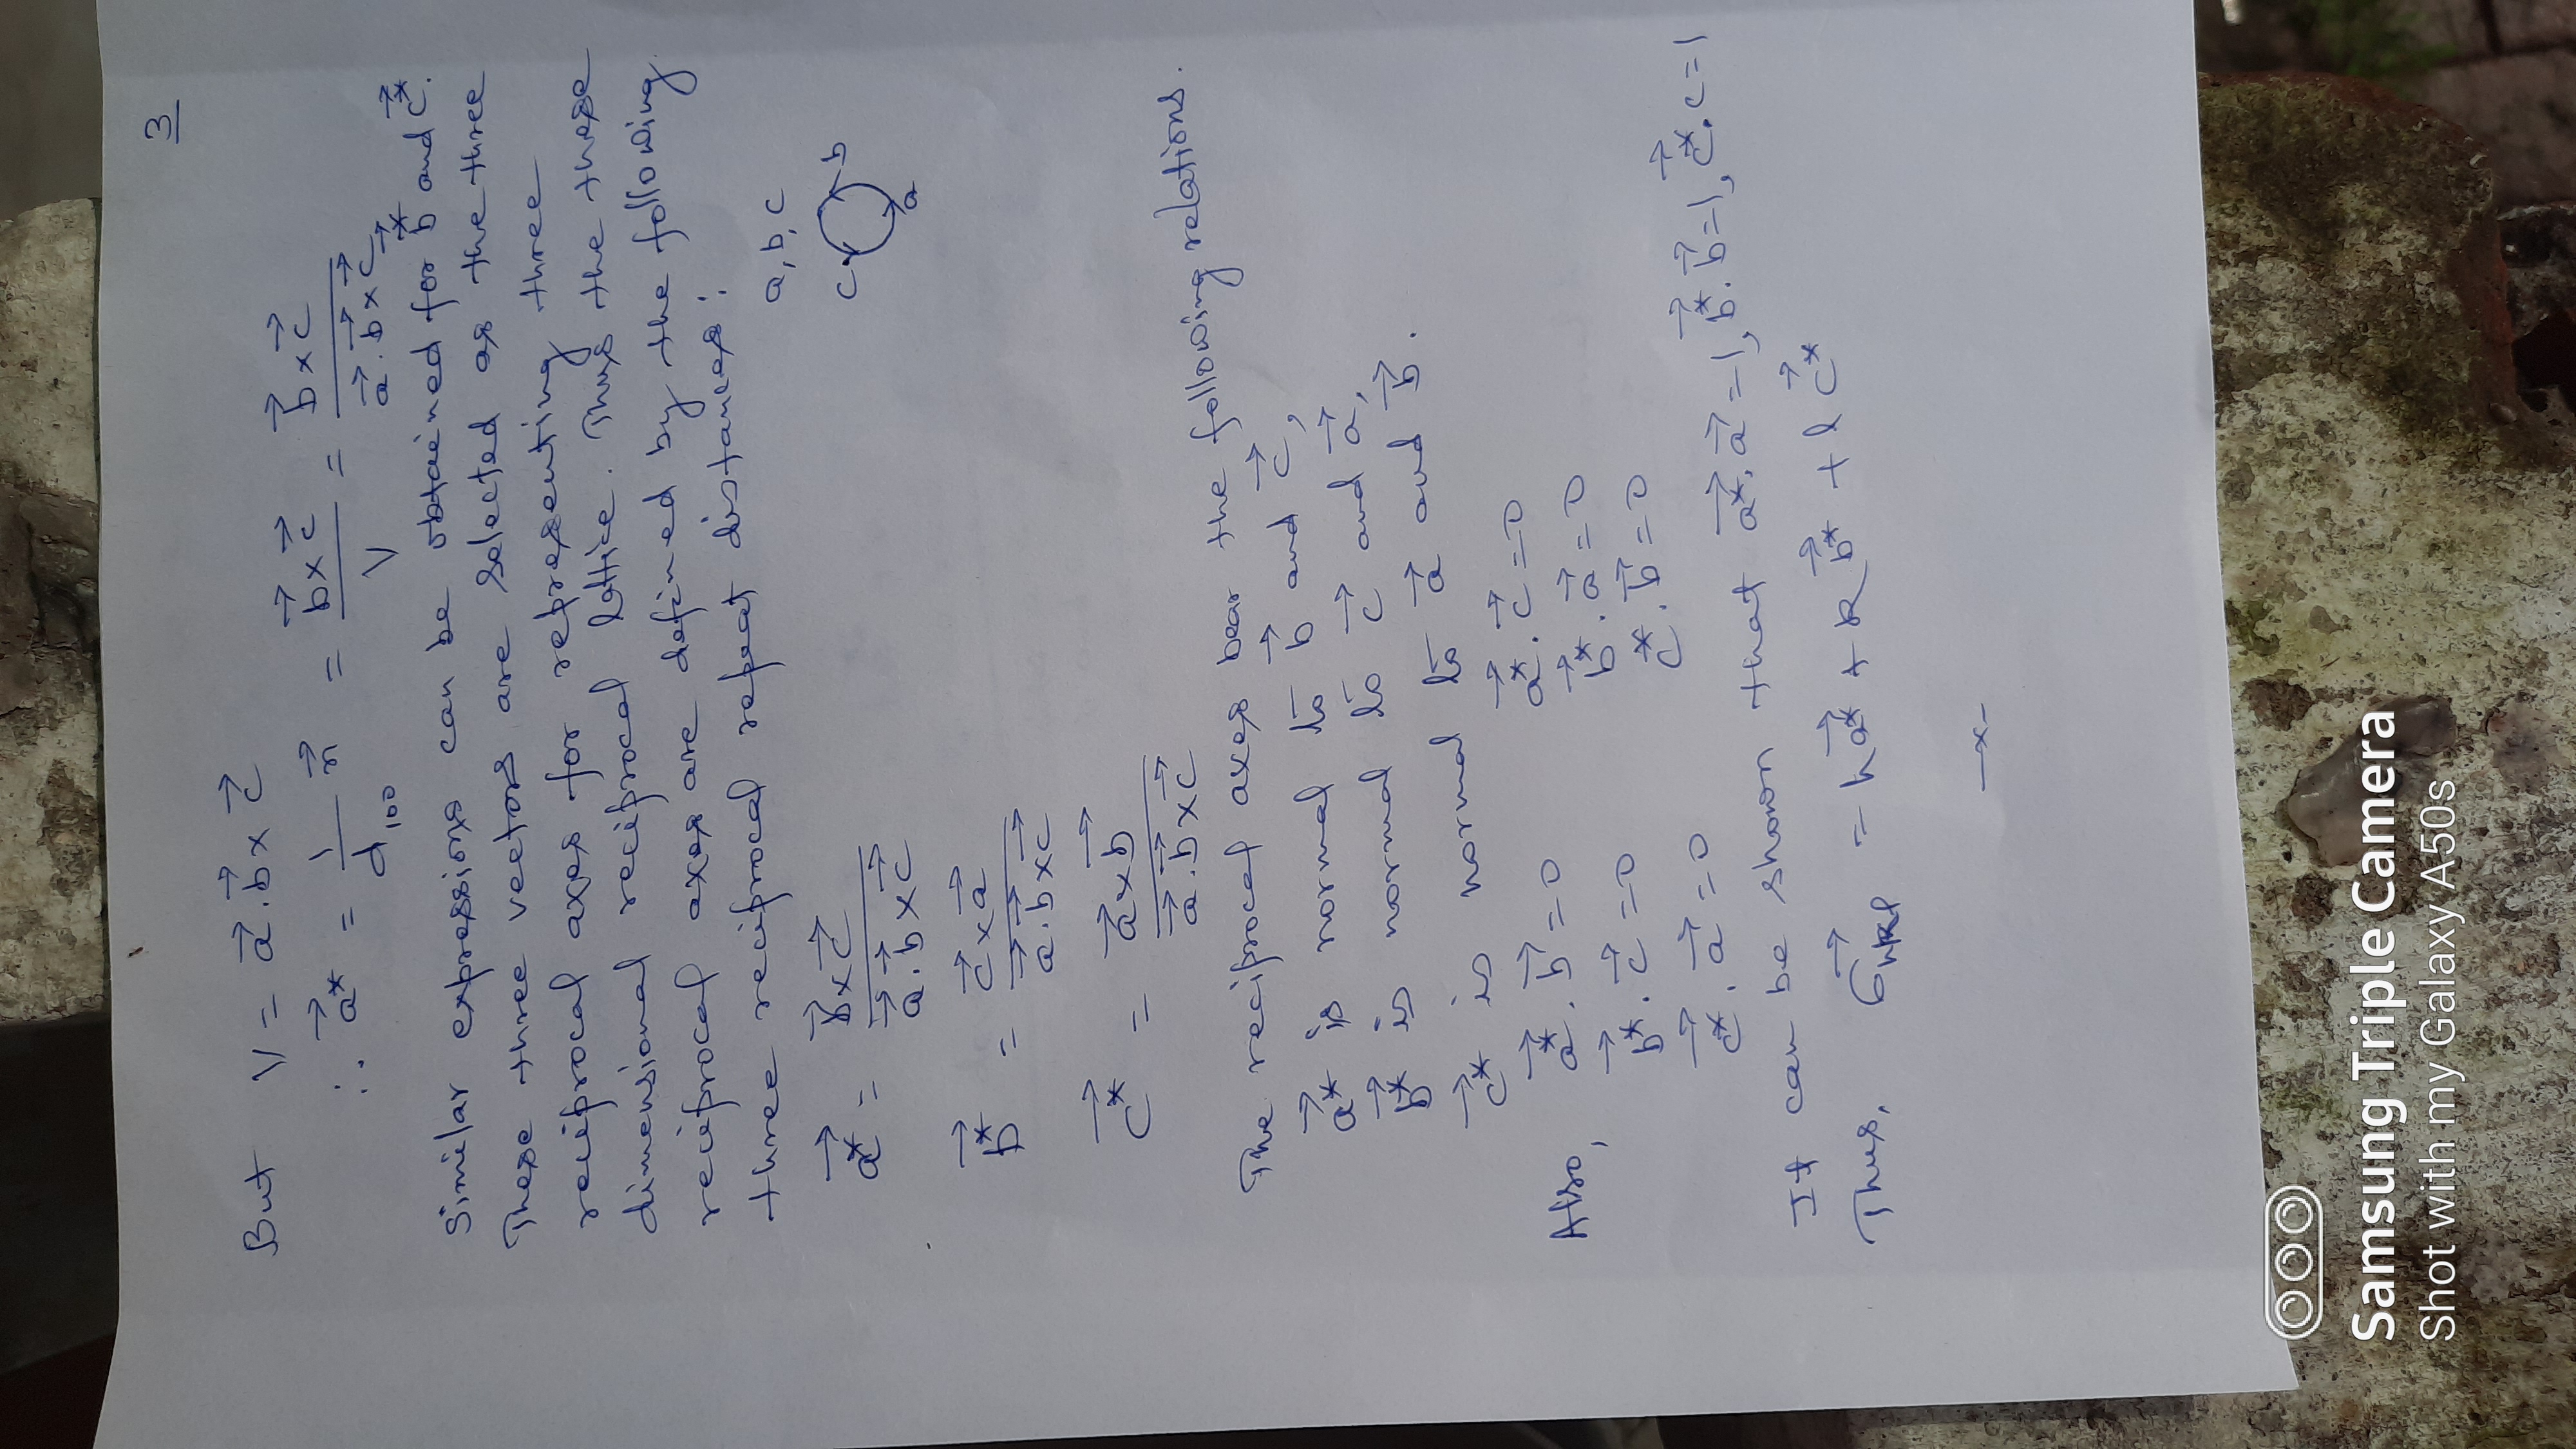 3
But V = a⃗ . b⃗ × c⃗
∴ a⃗* = 1/d₁₀₀ n⃗ = (b⃗ × c⃗)/V = (b⃗ × c⃗)/(a⃗ . b⃗ × c⃗)
Similar expressions can be obtained for b⃗* and c⃗*.
These three vectors are selected as the three
reciprocal axes for representing three
dimensional reciprocal lattice. Thus the these
reciprocal axes are defined by the following
three reciprocal repeat distances:
a, b, c
c b a
a⃗* = (b⃗ × c⃗)/(a⃗ . b⃗ × c⃗)
b⃗* = (c⃗ × a⃗)/(a⃗ . b⃗ × c⃗)
c⃗* = (a⃗ × b⃗)/(a⃗ . b⃗ × c⃗)
The reciprocal axes bear the following relations.
a⃗* is normal to b⃗ and c⃗,
b⃗* is normal to c⃗ and a⃗,
c⃗* is normal to a⃗ and b⃗.
Also, a⃗* . b⃗ = 0 a⃗* . c⃗ = 0
b⃗* . c⃗ = 0 b⃗* . a⃗ = 0
c⃗* . a⃗ = 0 c* . b⃗ = 0
It can be shown that a⃗* . a⃗ = 1, b⃗* . b⃗ = 1, c⃗* . c = 1
Thus, G⃗hkl = h a⃗* + k b⃗* + l c⃗*
—x—
Samsung Triple Camera
Shot with my Galaxy A50s